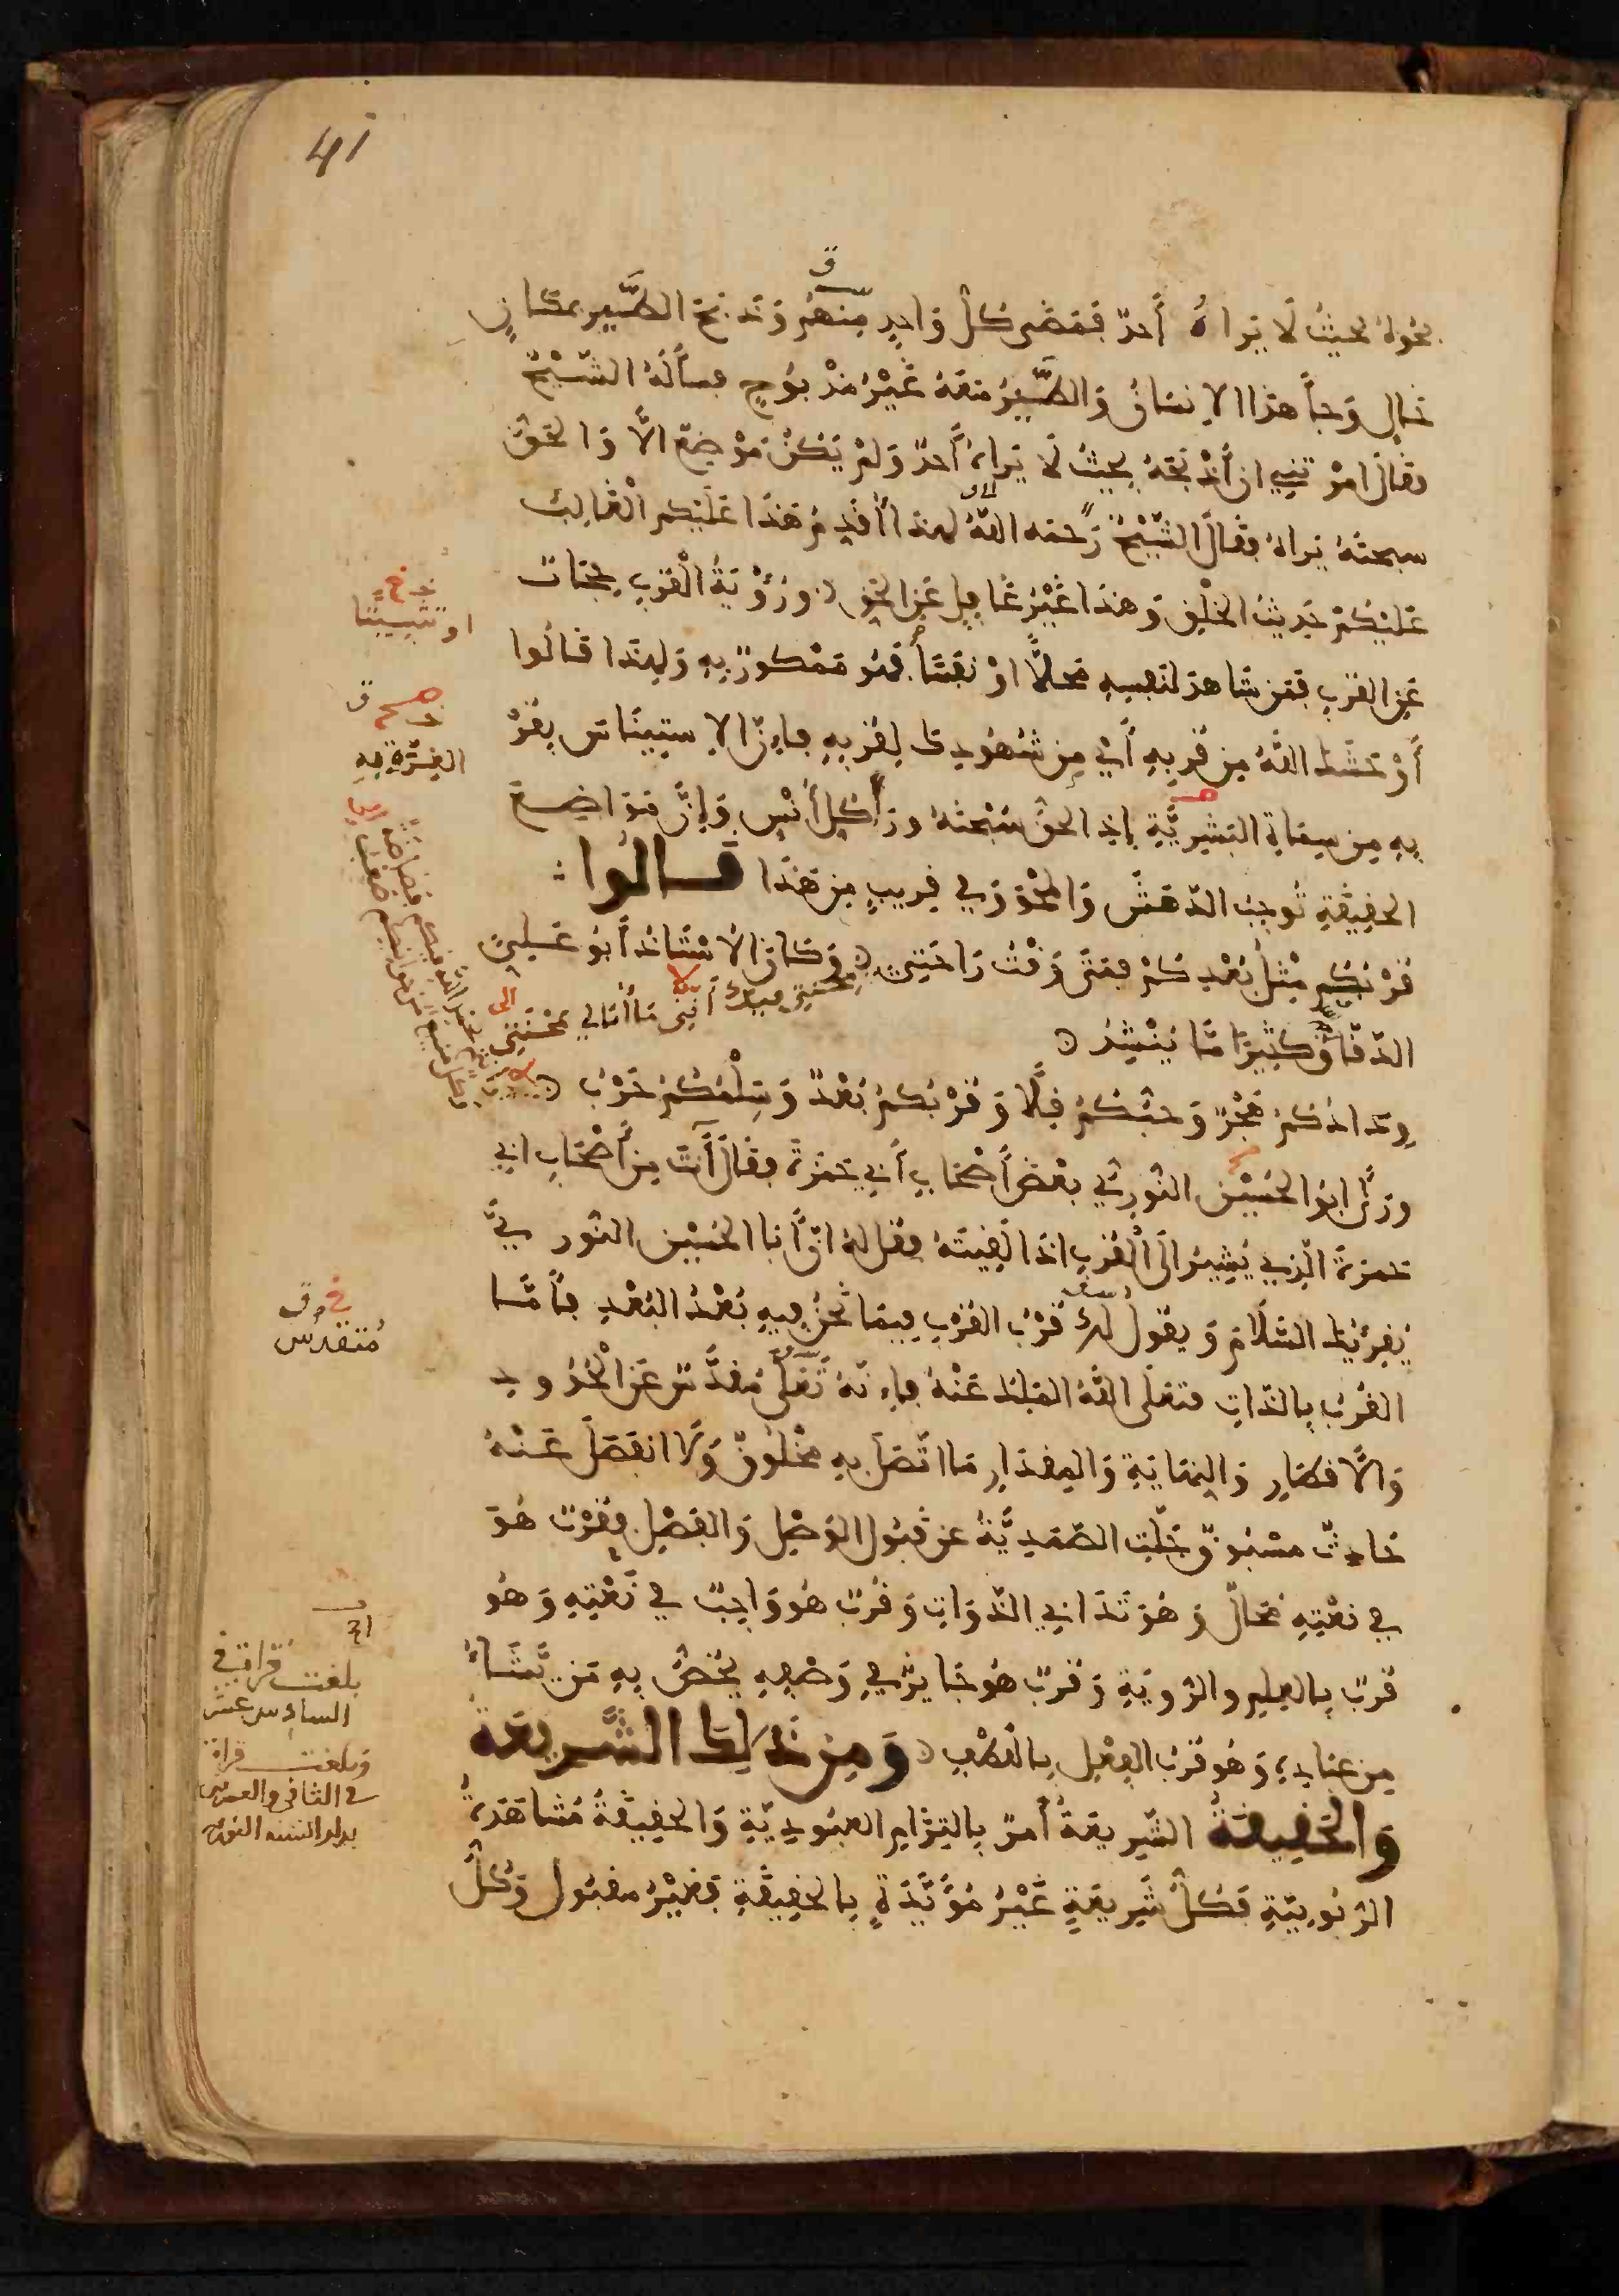 41
بحوه بحيث لا يراه أحد فمضى كل واحد منهم وذبح الطير بمكان
خال وجاء هذا الانسان والطير معه غير مذبوح فسأله الشيخ
فقال امرتني ان أذبحه بحيث لا يراه أحد ولم يكن موضع الا والحق
سبحنه يراه فقال الشيخ رحمه الله لهذا أقدم هذا عليكم الغالب
عليكم حديث الخلق وهذا غير غافل عن الحق ورؤية القرب حجاب
عن القرب فمن شاهد لنفسه محلا او نفسا فهو ممكور به ولهذا قالوا
أوحشك الله من قربه أي من شهودك لقربه فإن الاستيناس بقربه
به من سمات العزة به اذ الحق سبحنه ورا كل أنس وإن مواضع
الحقيقة توجب الدهش والمحو وفي قريب من هذا قالوا
محنتي فيك أنني ما أبالي بمحنتي
قربكم مثل بعدكم فمتى وقت راحتي وكان الاستاذ أبو علي
الدقاق كثيرا ما ينشد
ودادكم هجر وحبكم قلا وقربكم بعد وسلمكم حرب
ورأى ابو الحسين النوري بعض أصحاب أبي حمزة فقال أنت من أصحاب ابي
حمزة الذي يشير الى القرب اذا لقيته فقل له ان أبا الحسين النوري
يقرئك السلام ويقول لك قرب القرب فيما نحن فيه بعد البعد فأما
القرب بالذات فتعلى الله الملك عنه فإنه تعلى مقدس عن الحدود
والأقطار والنهاية والمقدار ما اتصل به مخلوق ولا انفصل عنه
حادث مسبوق جلت الصمدية عن قبول الوصل والفصل فقرب هو
في نعته محال وهو تداني الذوات وقرب هو واجب في نعته وهو
قرب بالعلم والرؤية وقرب هو جايز في وصفه يخص به من يشاء
من عباده وهو قرب الفعل باللطف ومن ذلك الشريعة
والحقيقة الشريعة أمر بالتزام العبودية والحقيقة مشاهدة
الربوبية فكل شريعة غير مؤيدة بالحقيقة فغير مقبول وكل
او تثبيتا
العزة به
متقدس
بلغت قراة في
السادس عشر
وبلغت قراة
في الثاني والعشرين